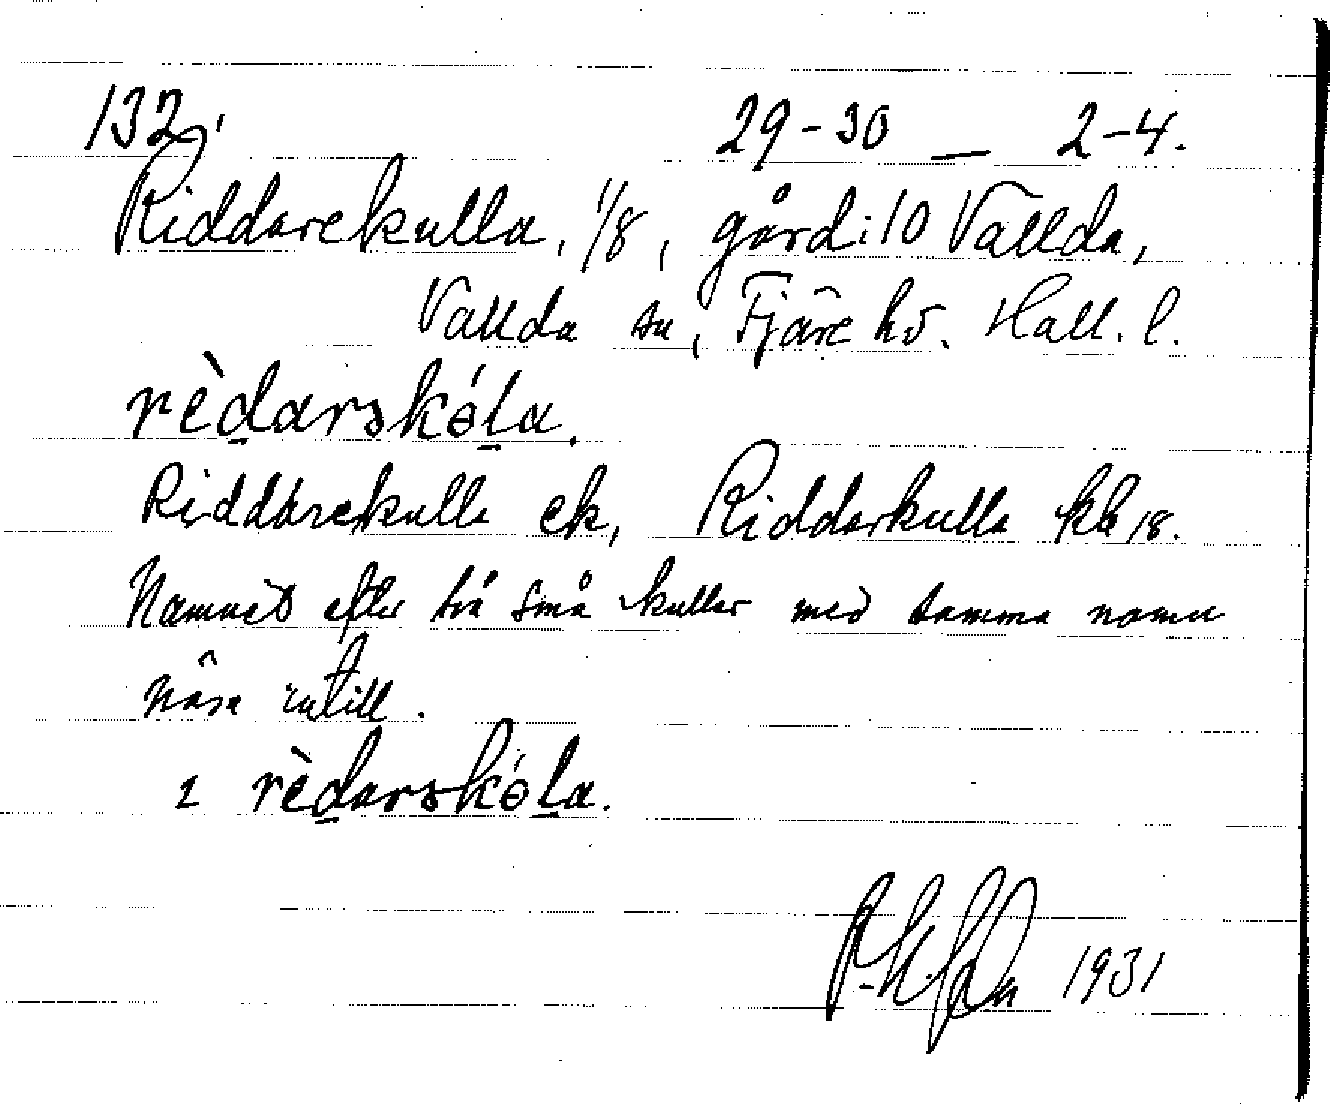 132, 29-30 — 2-4.
Riddarekulla, 1/8, gård i 10 Vallda,
Vallda sn, Fjäre hd. Hall. l.
rèdarskóla.
Riddarekulla ek, Riddarkulla kb 18.
Namnet efter två små kullar med samma namn
nära intill.
2 rèdarskóla.
1931